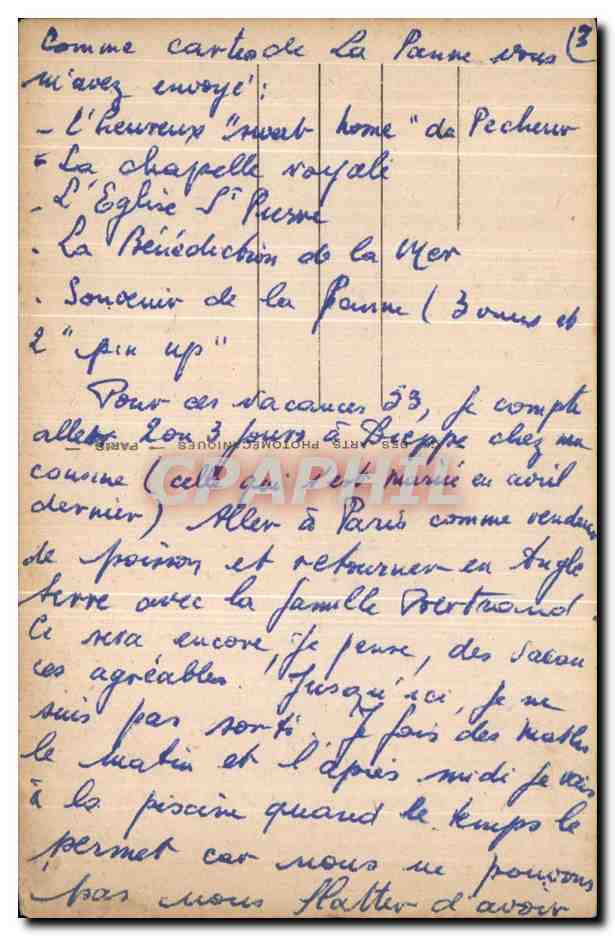 (3
Comme cartes de La Panne vous
m'avez envoyé :
- L'heureux "sweet home" du Pecheur
- La chapelle royale
- L'Eglise St Pierre
- La Bénédiction de la Mer
- Souvenir de la Panne (3 vues et
2 "pin up"
Pour ces vacances 53, je compte
aller 2 ou 3 jours à Dieppe chez ma
DES ARTS PHOTOMECHNIQUES - PARIS
cousine (celle qui s'est marié en avril
CPAPHIL
dernier) Aller à Paris comme vendeur
de poisson et retourner en Angle
terre avec la famille Bertrand.
Ce sera encore, je pense, des vacan
ces agréables. Jusqu'ici, je ne
suis pas sorti. Je fais des maths
le matin et l'après midi je vais
à la piscine quand le temps le
permet car nous ne pouvons
pas nous flatter d'avoir